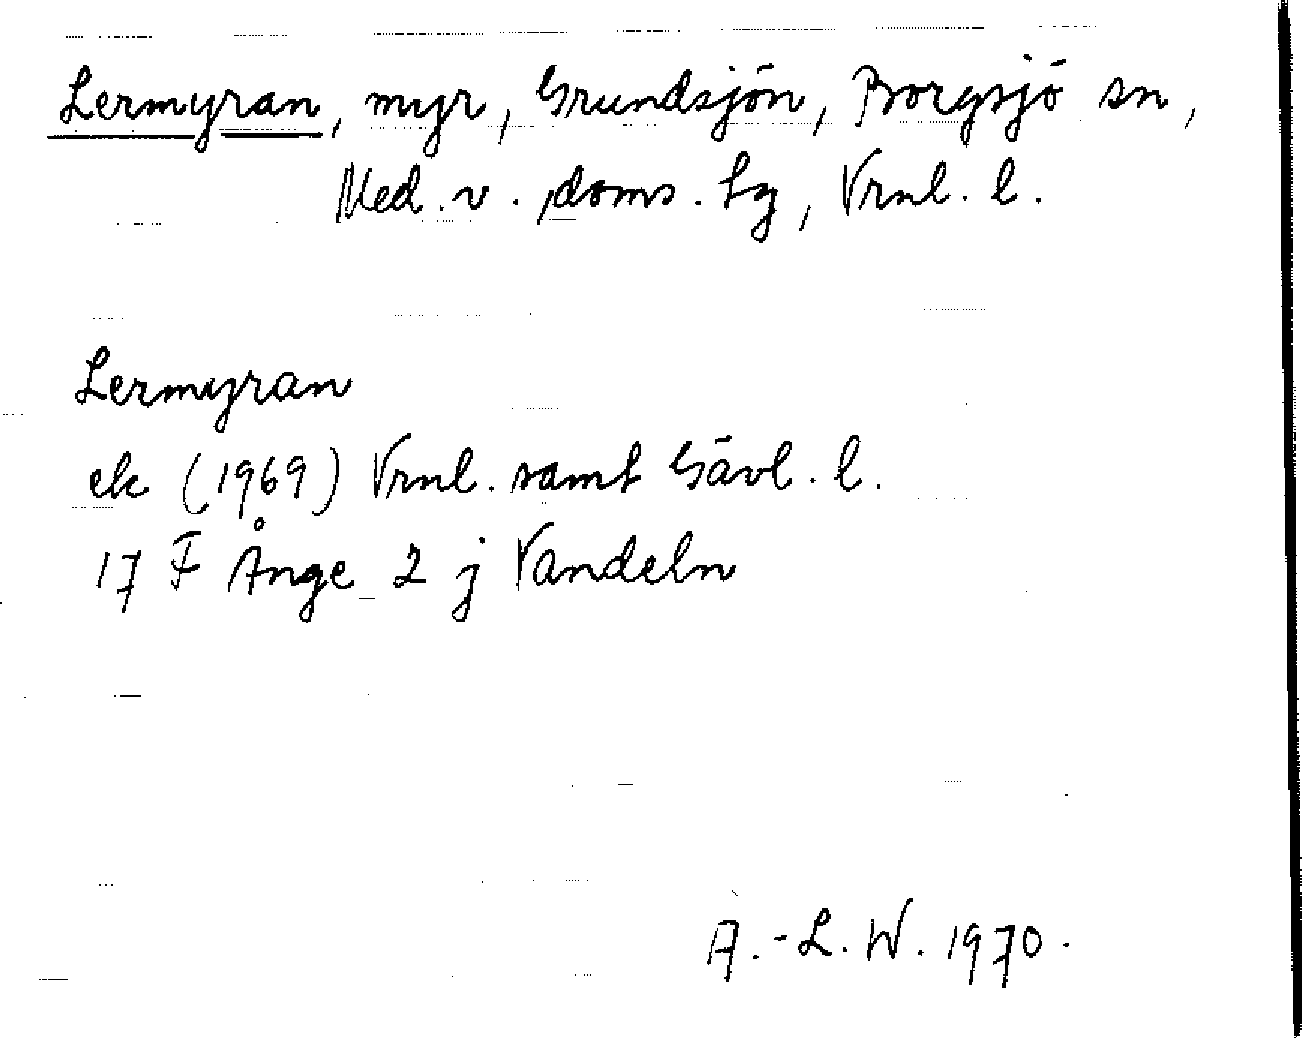 Lermyran, myr, Grundsjön, Borgsjö sn,
Med. v. doms. tg, Vrnl. l.
Lermyran
ek (1969) Vrnl. samt Gävl. l.
17 F Ånge 2 j Vandeln
A.-L. W. 1970.